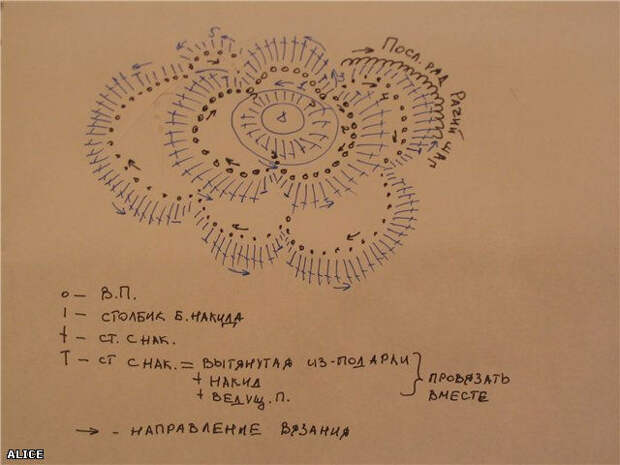 5
1
4
2
8
3
ПОСЛ. РЯД
РАЧИЙ ШАГ
о — В.П.
I — СТОЛБИК Б. НАКИДА
† — СТ. С НАК.
Т — СТ С НАК. = ВЫТЯНУТАЯ ИЗ-ПОД АРКИ
+ НАКИД
+ ВЕДУЩ. П.
ПРОВЯЗАТЬ
ВМЕСТЕ
→ - НАПРАВЛЕНИЕ ВЯЗАНИЯ
ALICE